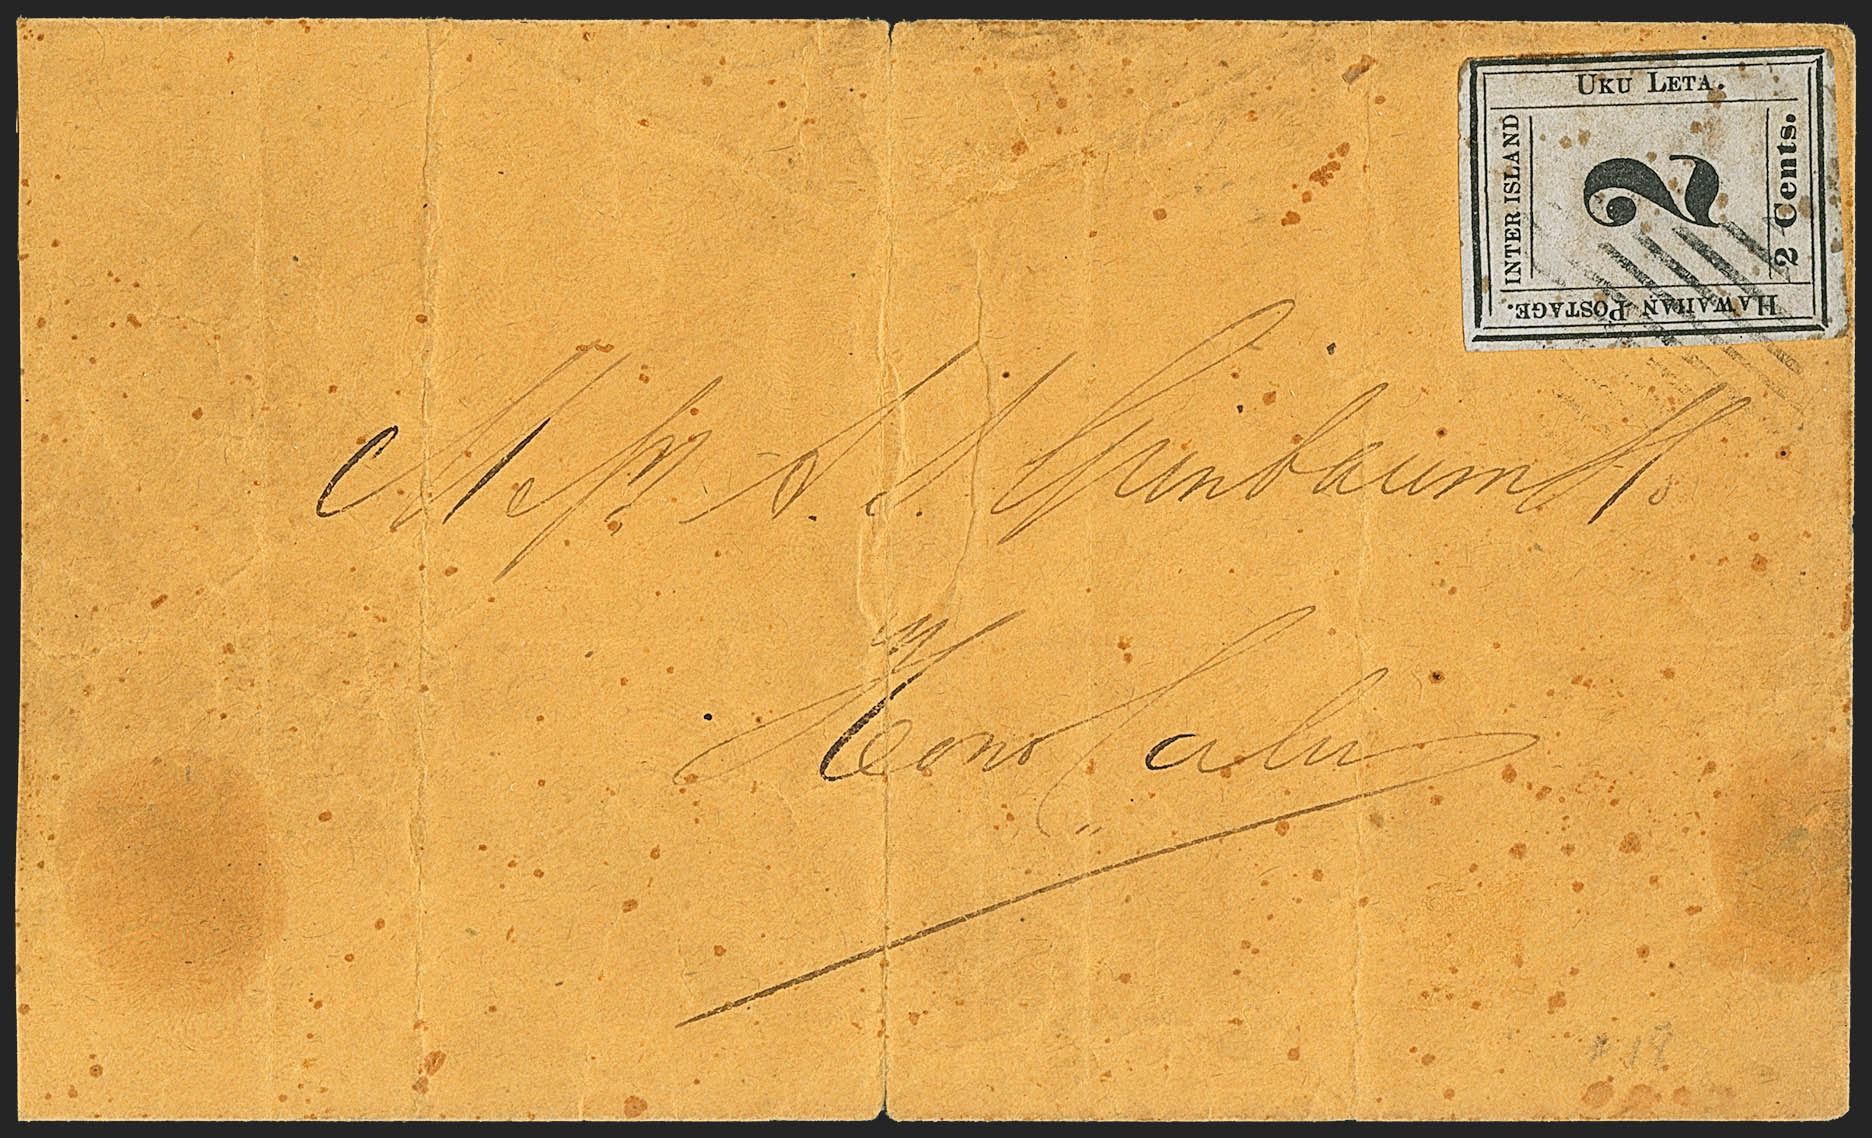 UKU LETA.
INTER ISLAND
2
2 Cents.
HAWAIIAN POSTAGE.
Messrs. A. S. Grinbaum & Co.
Honolulu